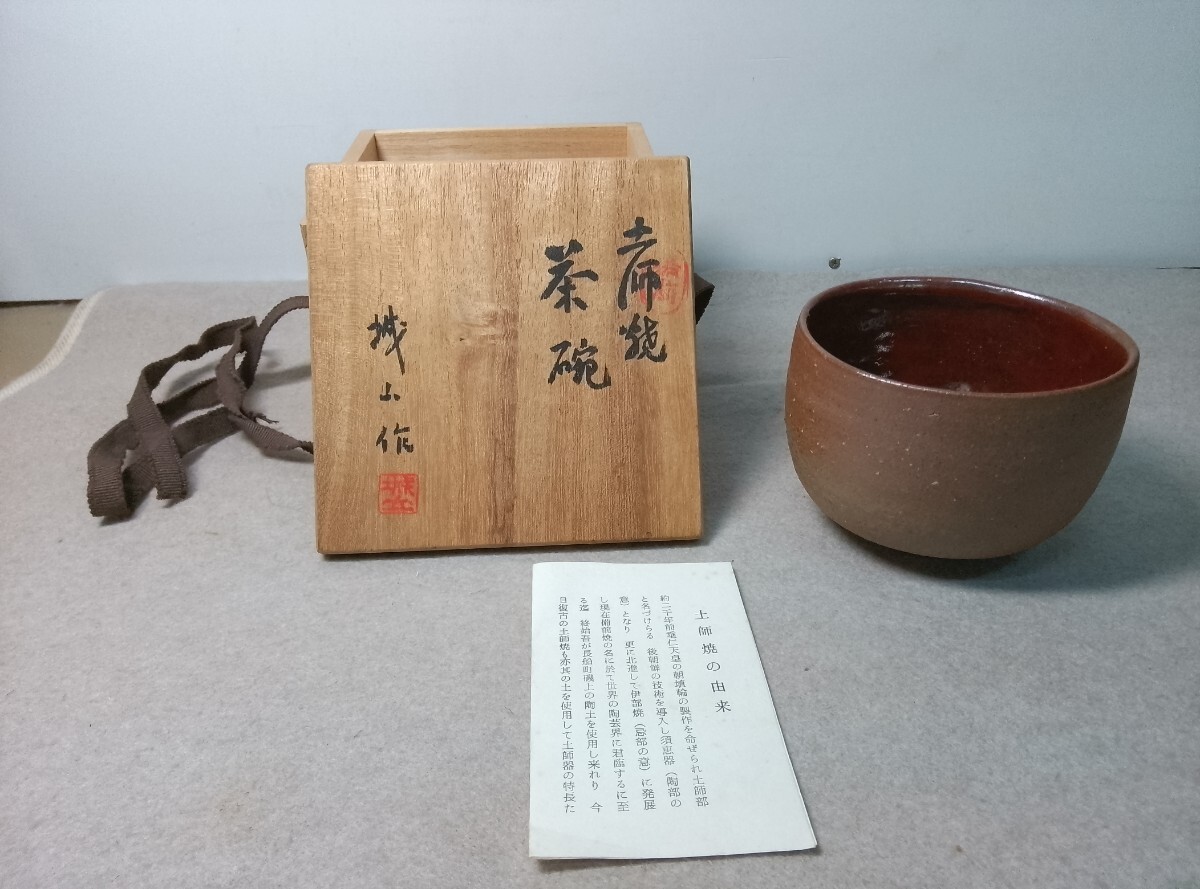 土師焼
茶碗
城山作
土師焼の由来
約二千年前垂仁天皇の朝埴輪の製作を命ぜられ土師部
と名づけらる　後朝鮮の技術を導入し須恵器（陶部の
意）となり　更に北進して伊部焼（忌部の意）に発展
し現在備前焼の名に於て世界の陶芸界に君臨するに至
る迄　終始吾が長船町磯上の陶土を使用し来れり　今
日復古の土師焼も亦其の土を使用して土師器の特長た